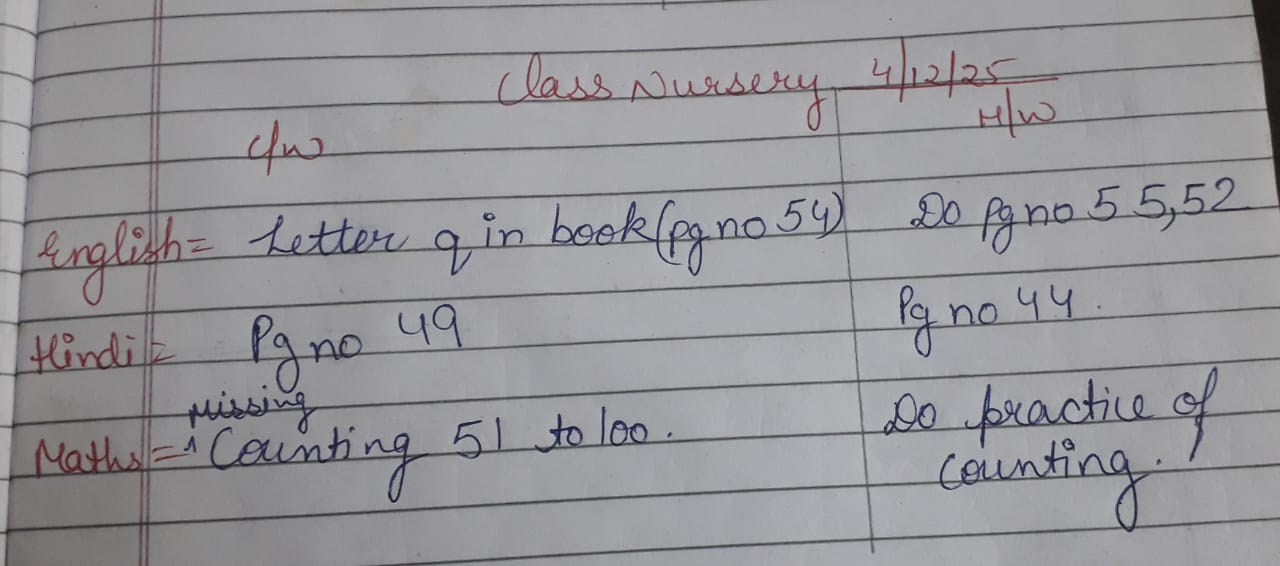 Class Nursery 4/12/25
C/W H/W
English = Letter q in book (pg no 54) Do pg no 55,52
Hindi = Pg no 49 Pg no 44.
Maths = Missing Counting 51 to 100. Do practice of
counting.